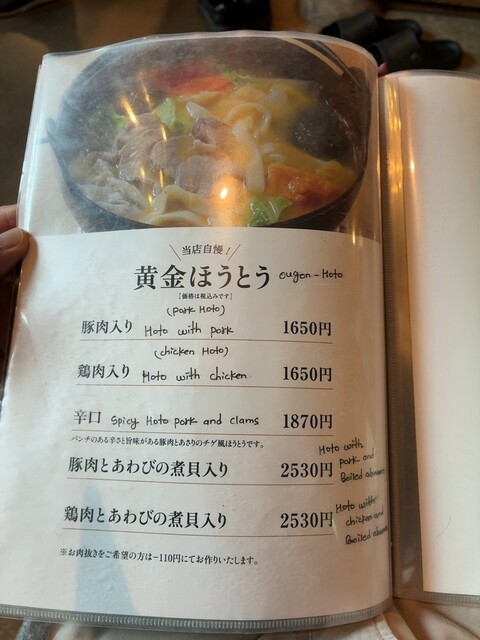 当店自慢！
黄金ほうとう ougon-Hoto
[価格は税込みです]
(pork Hoto)
豚肉入り Hoto with pork 1650円
(chicken Hoto)
鶏肉入り Hoto with chicken 1650円
辛口 Spicy Hoto pork and clams 1870円
パンチのある辛さと旨味がある豚肉とあさりのチゲ風ほうとうです。
豚肉とあわびの煮貝入り 2530円
Hoto with
pork and
Boiled abalone
鶏肉とあわびの煮貝入り 2530円
Hoto with
chicken and
Boiled abalone
※お肉抜きをご希望の方は−110円にてお作りいたします。